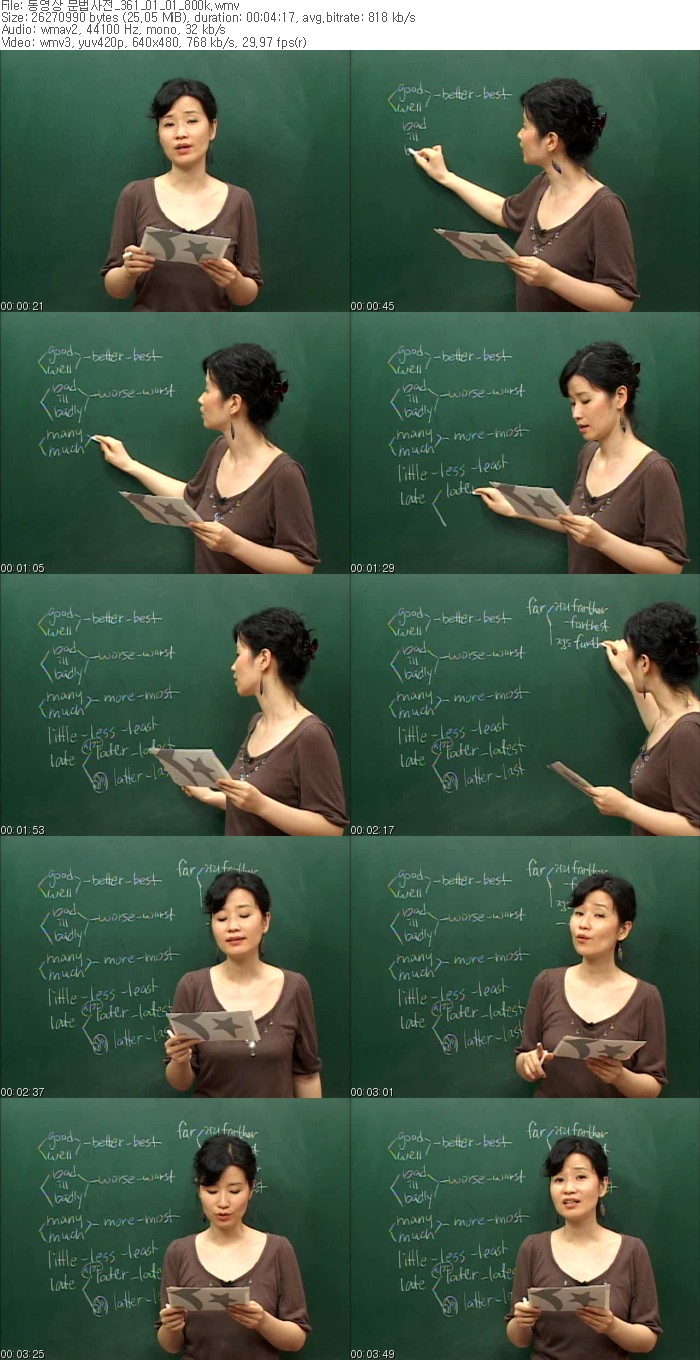 File: 동영상 문법사전_361_01_01_800k.wmv
Size: 26270990 bytes (25.05 MiB), duration: 00:04:17, avg.bitrate: 818 kb/s
Audio: wmav2, 44100 Hz, mono, 32 kb/s
Video: wmv3, yuv420p, 640x480, 768 kb/s, 29.97 fps(r)
good
well
-better-best
bad
ill
00:00:21
00:00:45
good
well
-better-best
bad
ill
badly
-worse-worst
many
much
00:01:05
good
well
-better-best
bad
ill
badly
-worse-worst
many
much
- more-most
little-less-least
late
later
00:01:29
good
well
-better-best
bad
ill
badly
-worse-worst
many
much
- more-most
little-less-least
late
시간
later-latest
순서
latter-las
00:01:53
good
well
-better-best
bad
ill
badly
-worse-worst
many
much
- more-most
little-less-least
late
시간
later-latest
순서
latter-last
far
거리 farther
-farthest
정도 furth
00:02:17
good
well
-better-best
bad
ill
badly
-worse-worst
many
much
- more-most
little-less-least
late
시간
later-latest
순서
latter-las
far
거리 farther
00:02:37
good
well
-better-best
bad
ill
badly
-worse-worst
many
much
- more-most
little-less-least
late
시간
later-latest
순서
latter-last
far
거리 farther
00:03:01
good
well
-better-best
bad
ill
badly
-worse-worst
many
much
- more-most
little-less-least
late
시간
later-lates
순서
latter-l
far
거리 farther
00:03:25
good
well
-better-best
bad
ill
badly
-worse-worst
many
much
- more-most
little-less-least
late
시간
later-lates
순서
latter-las
far
거리 farther
00:03:49